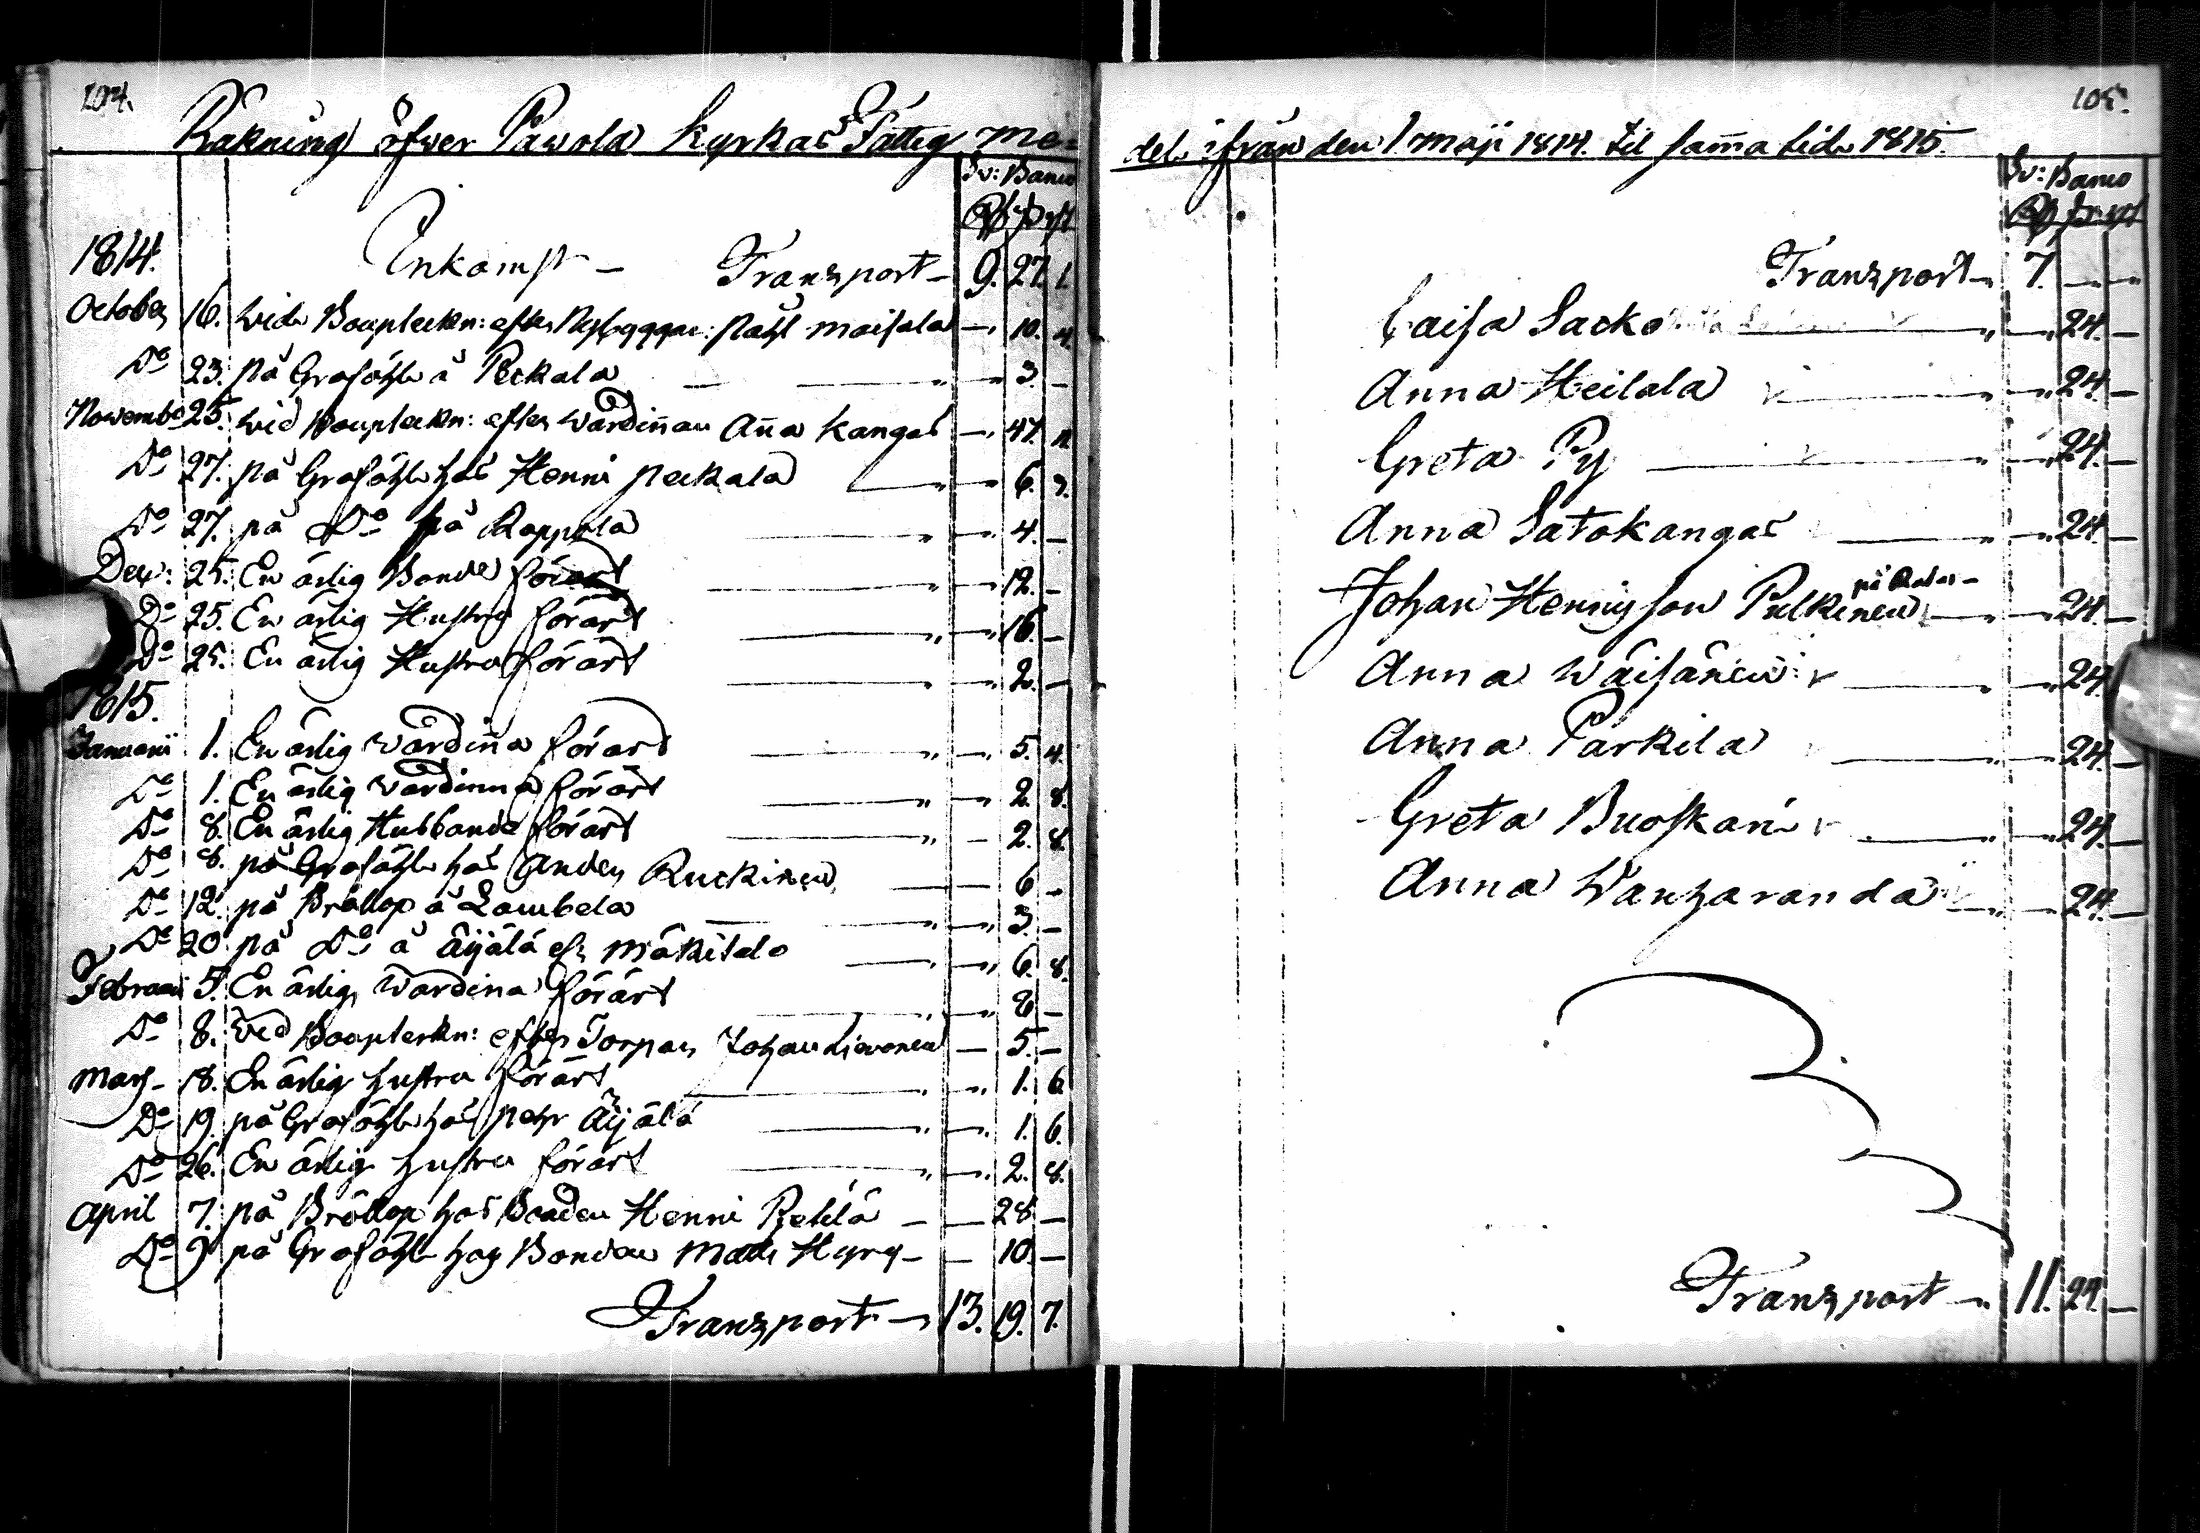 104.
Räkning öfwer Pawola Kyrkas Fattig me-
Sv: Banco
Rd ß rst
1814. Inkomst - Transport - 9. 27. 1.
October 16. wid Bouptekn: efter Nybyggar: Påhl maisala - 10. 4.
Do 23. på Graföhl å Pekkala - 3. -
Novemb: 25. wid Bouptekn: efter wärdinnan Anna Kangas - 47. 11.
Do 27. på Graföhl hos Henric Peckala " - 6. 9.
Do 27. på Do på Rappola " - 4. -
Dec: 25. En ärlig Bonde förärt " - 12. -
Do 25. En ärlig Hustru förärt " - 16. -
Do 25. En ärlig Hustru förärt " - 2. -
1815.
Januarii 1. En ärlig wärdinna förärt " - 5. 4.
Do 1. En ärlig wärdinna förärt " - 2. 8.
Do 8. En ärlig Husbonde förärt " - 2. 8.
Do 8. på Graföhl hos Anders Ruckinen " - 6 -
Do 12. på Bröllop å Lambela " - 3. -
Do 20 på Do å Äijälä el. mäkitalo " - 6. 8.
Februari 5. En ärlig wärdinna förärt " - 8 -
Do 8. wid Bouptekn: efter Torpar Johan Lievonen - 5. -
Mars - 18. En ärlig hustru förärt " - 1. 6
Do 19. på Graföhl hos Pehr Äijälä " - 1. 6.
Do 26. En ärlig hustru förärt " - 2. 8.
April 7. på Bröllop hos Bonden Henric - 28 -
Do 9 på Graföhl hos Bonden Matts Hyry - - 10. -
Transport - 13. 19. 7.
105.
del ifrån den 1. Maji 1814. til samma tid 1815.
Sv: Banco
Rd ß rst
Transport - 7. - -
Caisa Sacko " - 24. -
Anna Heilala " - 24. -
Greta Py " - 24. -
Anna Satokangas " - 24. -
på
Johan Henricsson Pulkinen " - 24. -
Anna Wäisänen " - 24
Anna Parkila " - 24. -
Greta Ruoskari " - 24. -
Anna Wanharanda " - 24. -
Transport - 11. 24. -